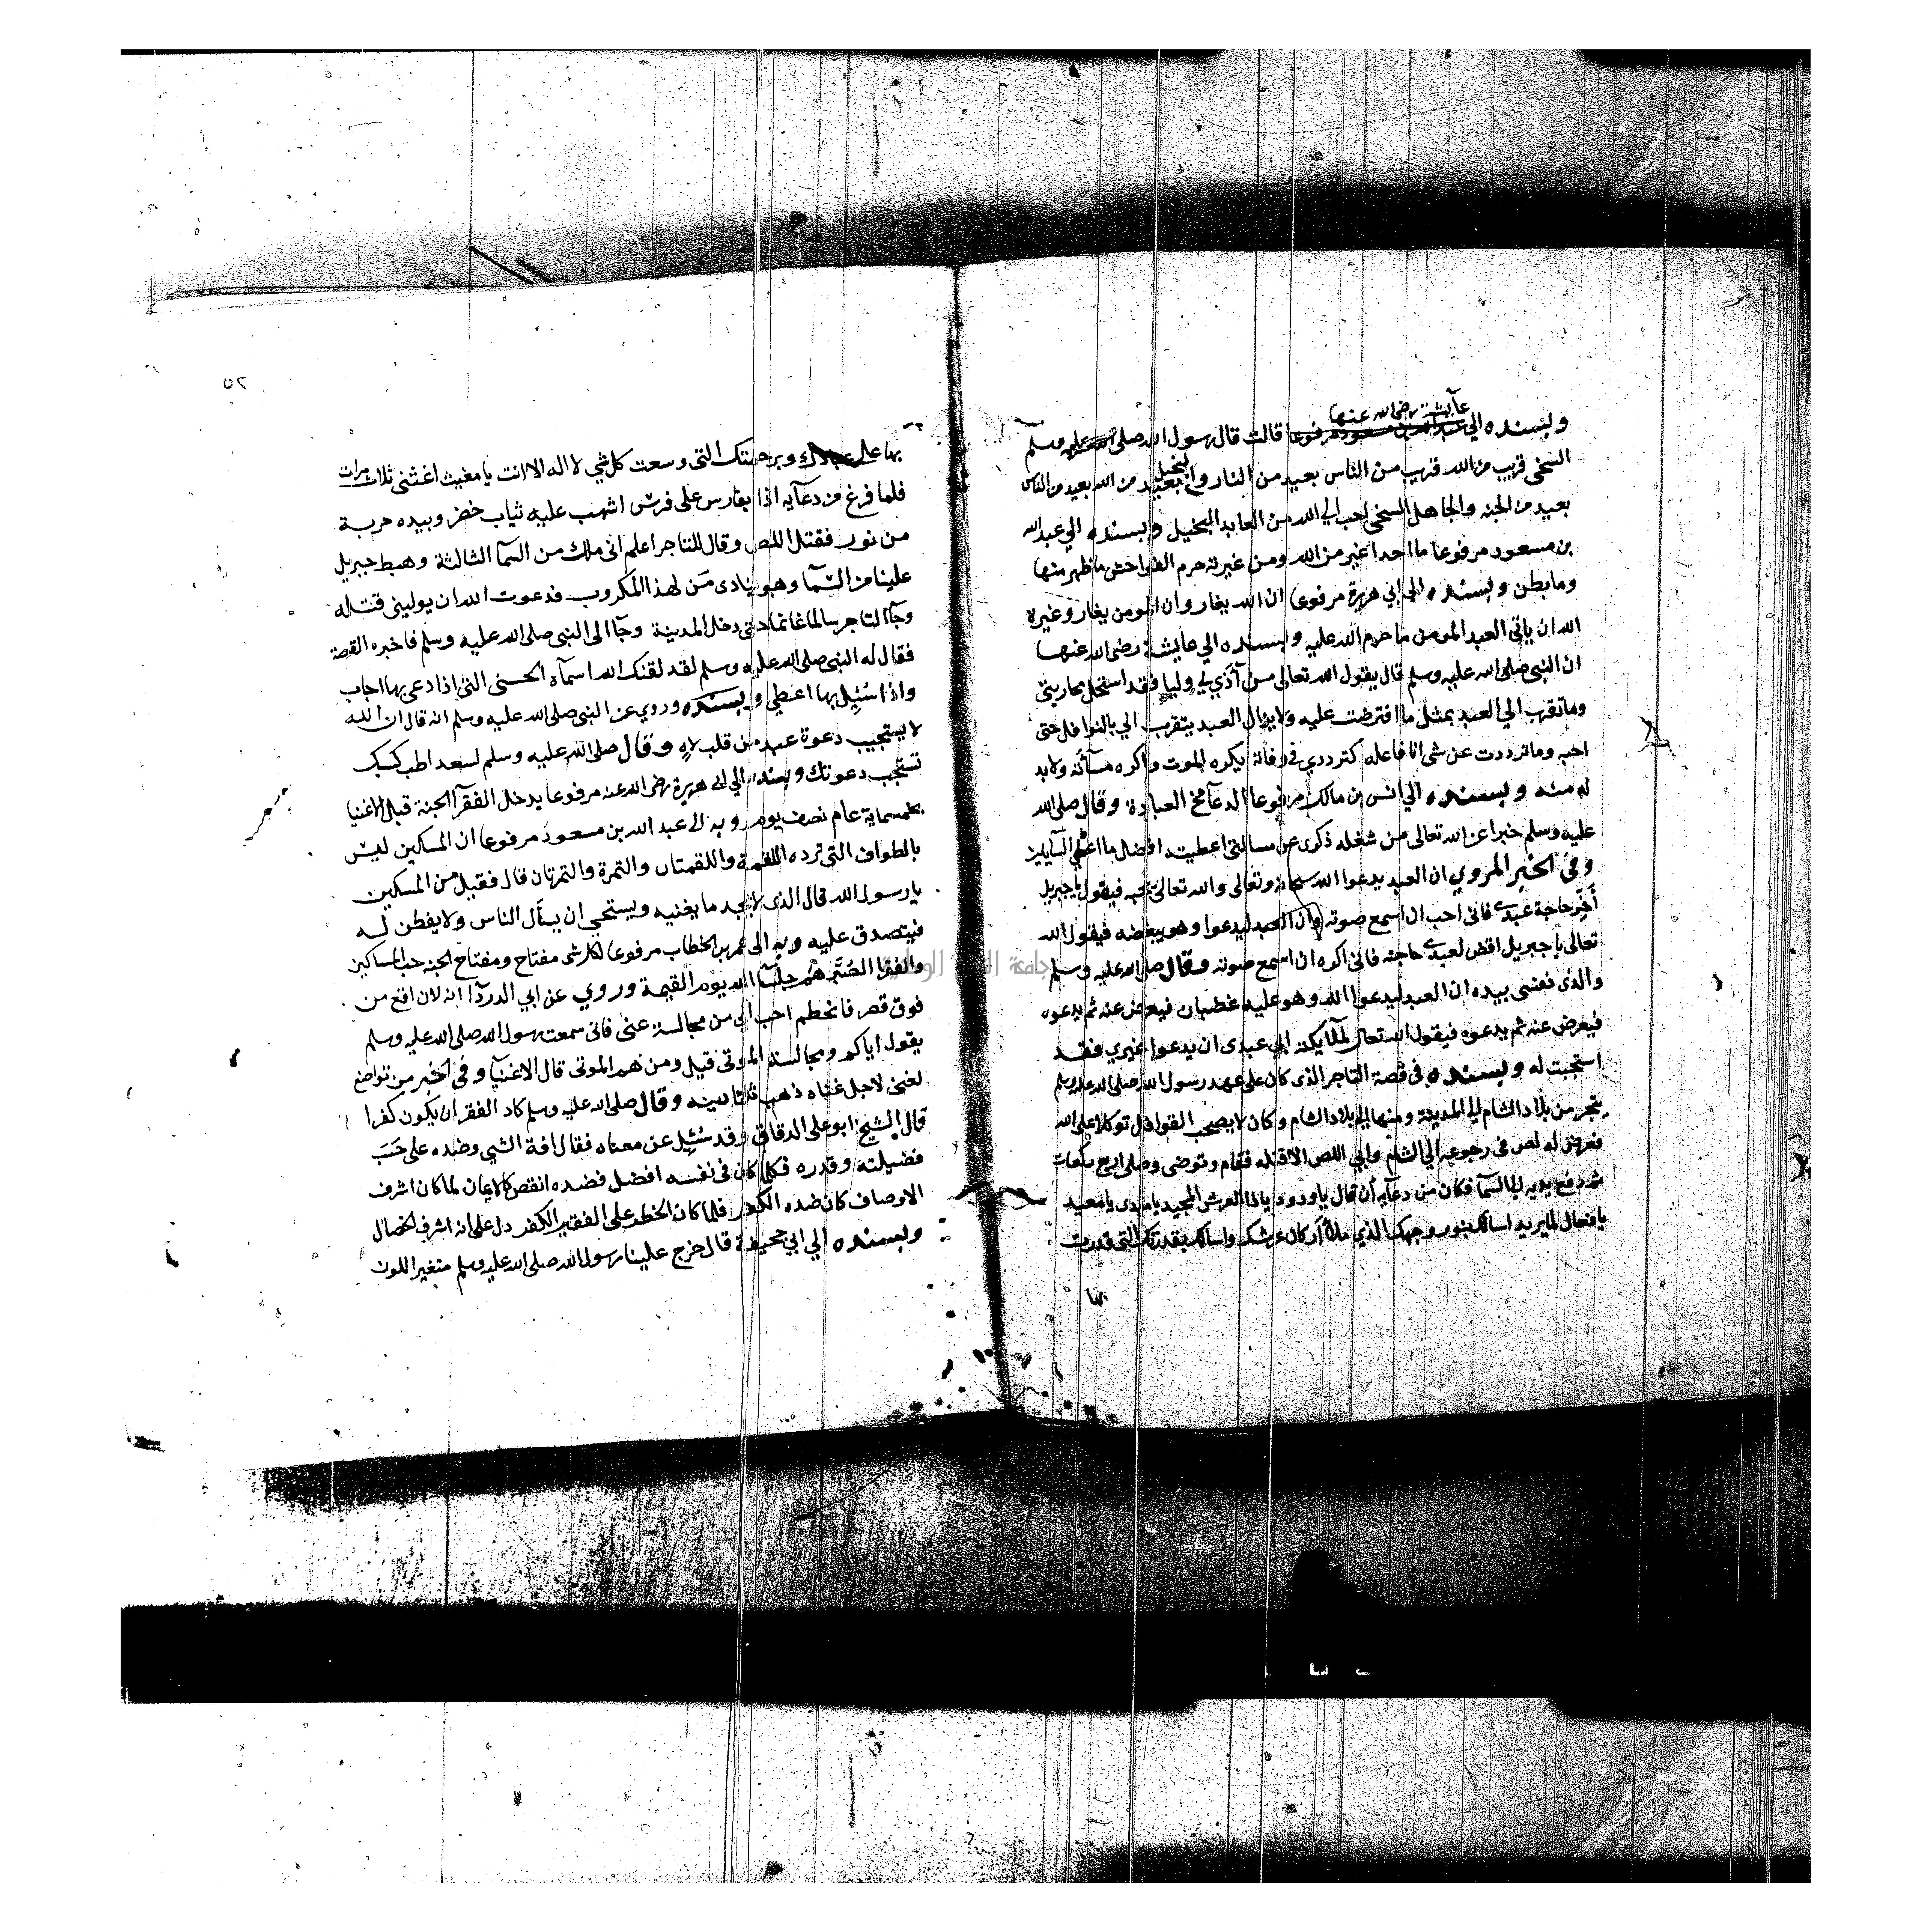 عآيشة رضي الله عنها
وبسنده الي عبد الله بن مسعود مرفوعا قالت قال رسول الله صلى الله عليه وسلم
السخي قريب من الله قريب من الناس بعيد من النار والبخيل بعيد من الله بعيد من الناس
بعيد من الجنه والجاهل السخي احب الي الله من العابد البخيل وبسنده الي عبد الله
بن مسعود مرفوعا ما احدا غير من الله ومن غيرته حرم الفواحش ما ظهر منها
وما بطن وبسنده الي ابي هريرة مرفوعا ان الله يغار وان المومن يغار وغيرة
الله ان ياتي العبد المومن ما حرم الله عليه وبسنده الي عايشة رضي الله عنها
ان النبي صلى الله عليه وسلم قال يقول الله تعالى من آذي لي وليا فقد استحل محاربتي
وما تقرب الي العبد بمثل ما افترضت عليه ولا يزال العبد يتقرب الي بالنوافل حتى
احبه وما ترددت عن شي انا فاعله كترددي في وفاته يكره الموت واكره مسأته ولا بد
له منه وبسنده الي انس بن مالك مرفوعا الدعآ مخ العبادة وقال صلى الله
عليه وسلم خبرا عن الله تعالى من شغله ذكري عن مسالتي اعطيته افضل ما اعطي السايلين
وفي الخبر المروي ان العبد يدعوا الله سبحانه وتعالى والله تعالى يحبه فيقول يا جبريل
أخّر حاجة عبدي فاني احب ان اسمع صوته وان العبد ليدعوا وهو يبغضه فيقول الله
تعالى يا جبريل اقض لعبدي حاجته فاني اكره ان اسمع صوته وقال صلى الله عليه وسلم
والذي نفسي بيده ان العبد ليدعوا الله وهو عليه غضبان فيعرض عنه ثم يدعوه
فيعرض عنه ثم يدعوه فيقول الله تعالى لملآيكته ابي عبدي ان يدعوا غيري فقد
استجبت له وبسنده في قصة التاجر الذي كان على عهد رسول الله صلى الله عليه وسلم
يتجر من بلاد الشام الي المدينة ومنها الي بلاد الشام وكان لا يصحب القوافل توكلا على الله
فعرض له لص في رجوعه الي الشام وابي اللص الا قتله فقام وتوضى وصلى اربع ركعات
ثم رفع يديه الي السمآ فكان من دعآيه أن قال يا ودود يا ذا العرش المجيد يا مبدي يا معيد
يا فعال لما يريد اسالك بنور وجهك الذي ملأ أركان عرشك واسالك بقدرتك التي قدرت
بها
بها على عبادك وبرحمتك التي وسعت كل شي لا اله الا انت يا مغيث اغثني ثلاث مرات
فلما فرغ من دعآيه اذا بفارس على فرس اشهب عليه ثياب خضر وبيده حربة
من نور فقتل اللص وقال للتاجر اعلم اني ملك من السمآ الثالثة وهبط جبريل
علينا من السمآ وهو ينادي مَن لهذا المكروب فدعوت الله ان يوليني قتله
وجآ التاجر سالما غانما حتى دخل المدينة وجآ الى النبي صلى الله عليه وسلم فاخبره القصة
فقال له النبي صلى الله عليه وسلم لقد لقنك الله اسمآه الحسنى التي اذا دعي بها اجاب
واذا سُئِل بها اعطي وبسنده وروي عن النبي صلى الله عليه وسلم انه قال ان الله
لا يستجيب دعوة عبد من قلب لاهٍ وقال صلى الله عليه وسلم لسعد اطب كسبك
تستجب دعوتك وبسنده الي ابي هريرة رضي الله عنه مرفوعا يدخل الفقرآ الجنة قبل الاغنيا
بخمسماية عام نصف يوم وبه الى عبد الله بن مسعود مرفوعا ان المسكين ليس
بالطواف التي ترده اللقمة واللقمتان والتمرة والتمرتان قال فقيل من المسكين
يا رسول الله قال الذي لا يجد ما يغنيه ويستحي ان يسأل الناس ولا يفطن له
فيتصدق عليه وبه الى عمر بن الخطاب مرفوعا لكل شي مفتاح ومفتاح الجنه حب المساكين
والفقرا الصُبَّر هُم جلسآ الله يوم القيمة وروي عن ابي الدردآ انه لان اقع من
فوق قصر فانحطم احب الي من مجالسة غني فاني سمعت رسول الله صلى الله عليه وسلم
يقول اياكم ومجالسة الموتى قيل ومن هم الموتى قال الاغنيآ وفي الخبر من تواضع
لغني لاجل غناه ذهب ثلثا دينه وقال صلى الله عليه وسلم كاد الفقر ان يكون كفرا
قال الشيخ ابو علي الدقاق وقد سُئِل عن معناه فقال افة الشي وضده على حَسَب
فضيلته وقدره فكلما كان في نفسه افضل فضده انقص كالايمان لما كان اشرف
الاوصاف كان ضده الكفر فلما كان الخطر على الفقير الكفر دل على انه اشرف الخصال
وبسنده الي ابي جحيفة قال خرج علينا رسول الله صلى الله عليه وسلم متغير اللون